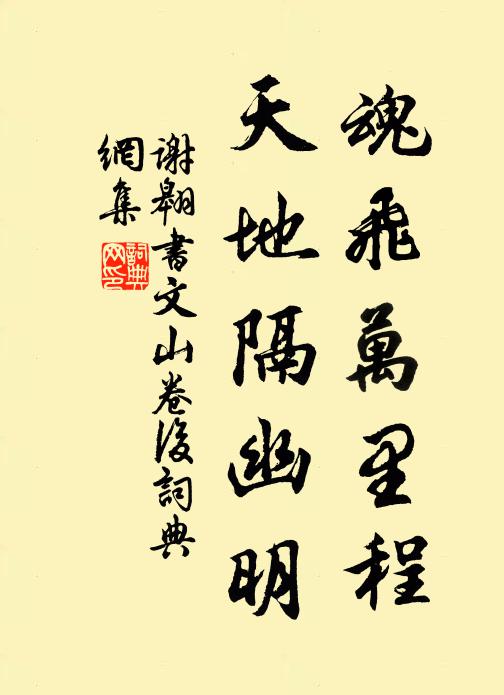 魂飛萬里程
天地隔幽明
謝翱書文山卷後詞典
網集
詞典網印